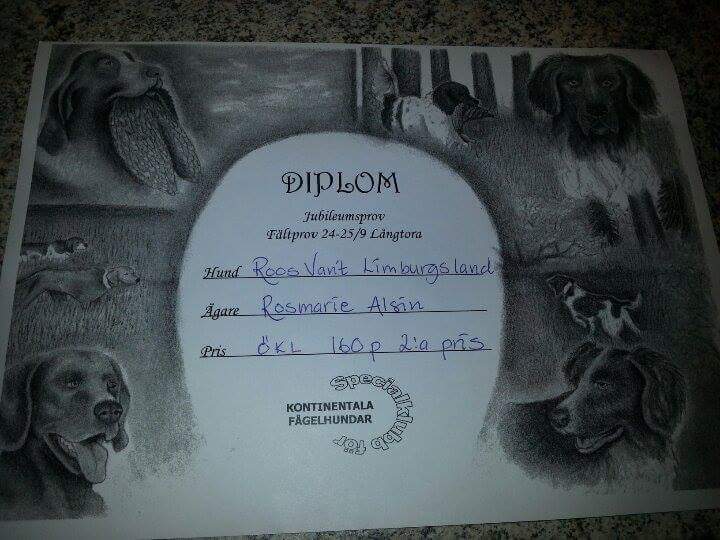 DIPLOM
Jubileumsprov
Fältprov 24-25/9 Långtora
Hund Roos Van't Limburgsland
Ägare Rosmarie Alsin
Pris ÖKL 160p 2:a pris
Specialklubb för
KONTINENTALA
FÅGELHUNDAR